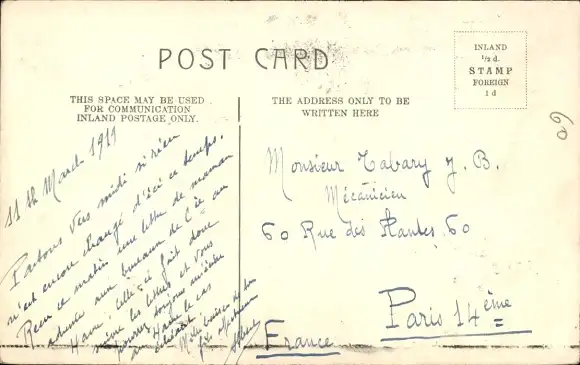 POST CARD
INLAND
½ d.
STAMP
FOREIGN
1 d
THIS SPACE MAY BE USED
FOR COMMUNICATION
INLAND POSTAGE ONLY.
THE ADDRESS ONLY TO BE
WRITTEN HERE
60
11th March 1911
Partons vers midi si rien
n'est encore changé d'ici ce temps.
Reçu ce matin une lettre de maman
adressée aux bureaux de la Cie au
Havre: celle-ci fait donc
suivre les lettres et vous
pourrez toujours m'écrire
au Havre le cas
échéant
Mille baisers de ton
fils
Monsieur Tabary J. B.
Mécanicien
60 Rue des Plantes 60
Paris 14ème
France